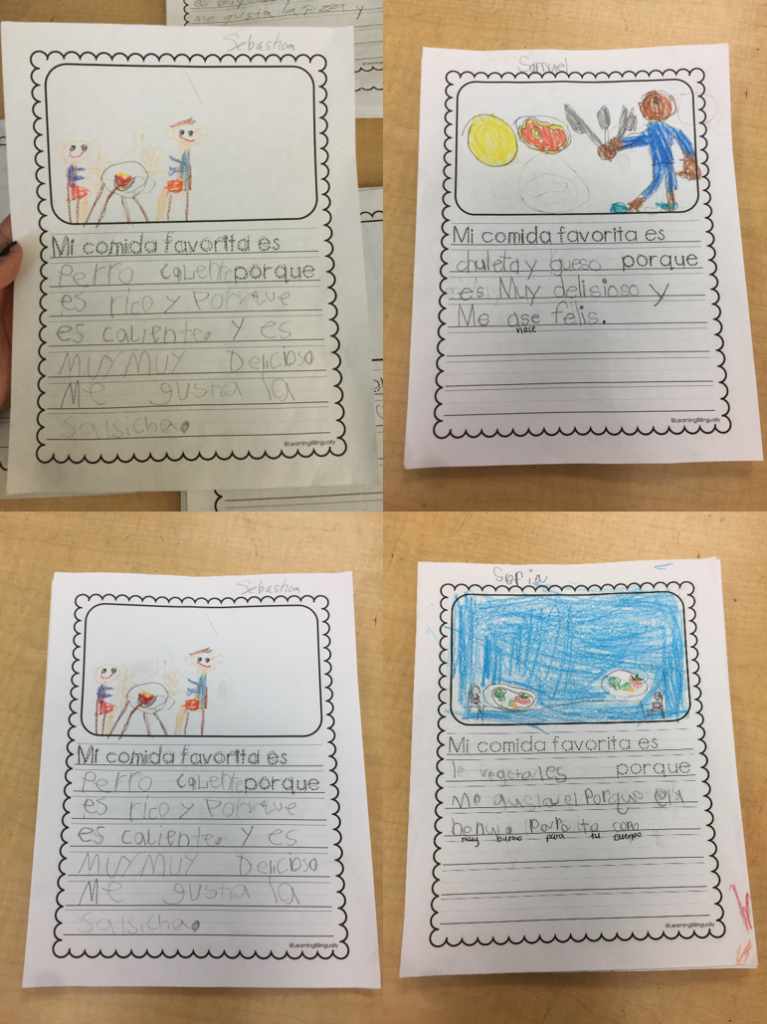 me gusta la pizza y
Sebastian
Mi comida favorita es
Perro caliente porque
es rico y Porque
es caliente. Y es
MUY MUY Delicioso
Me gusta la
Salsicha.
©LearningBilingually
Samuel
Mi comida favorita es
chuleta y queso porque
es Muy delisioso y
Me ase felis.
hace
©LearningBilingually
Sebastian
Mi comida favorita es
Perro caliente porque
es rico y Porque
es caliente. Y es
MUY MUY Delicioso
Me gusta la
Salsicha.
©LearningBilingually
Sofia
Mi comida favorita es
le vegetales porque
Me Porque
muy bueno para tu cuerpo
©LearningBilingually